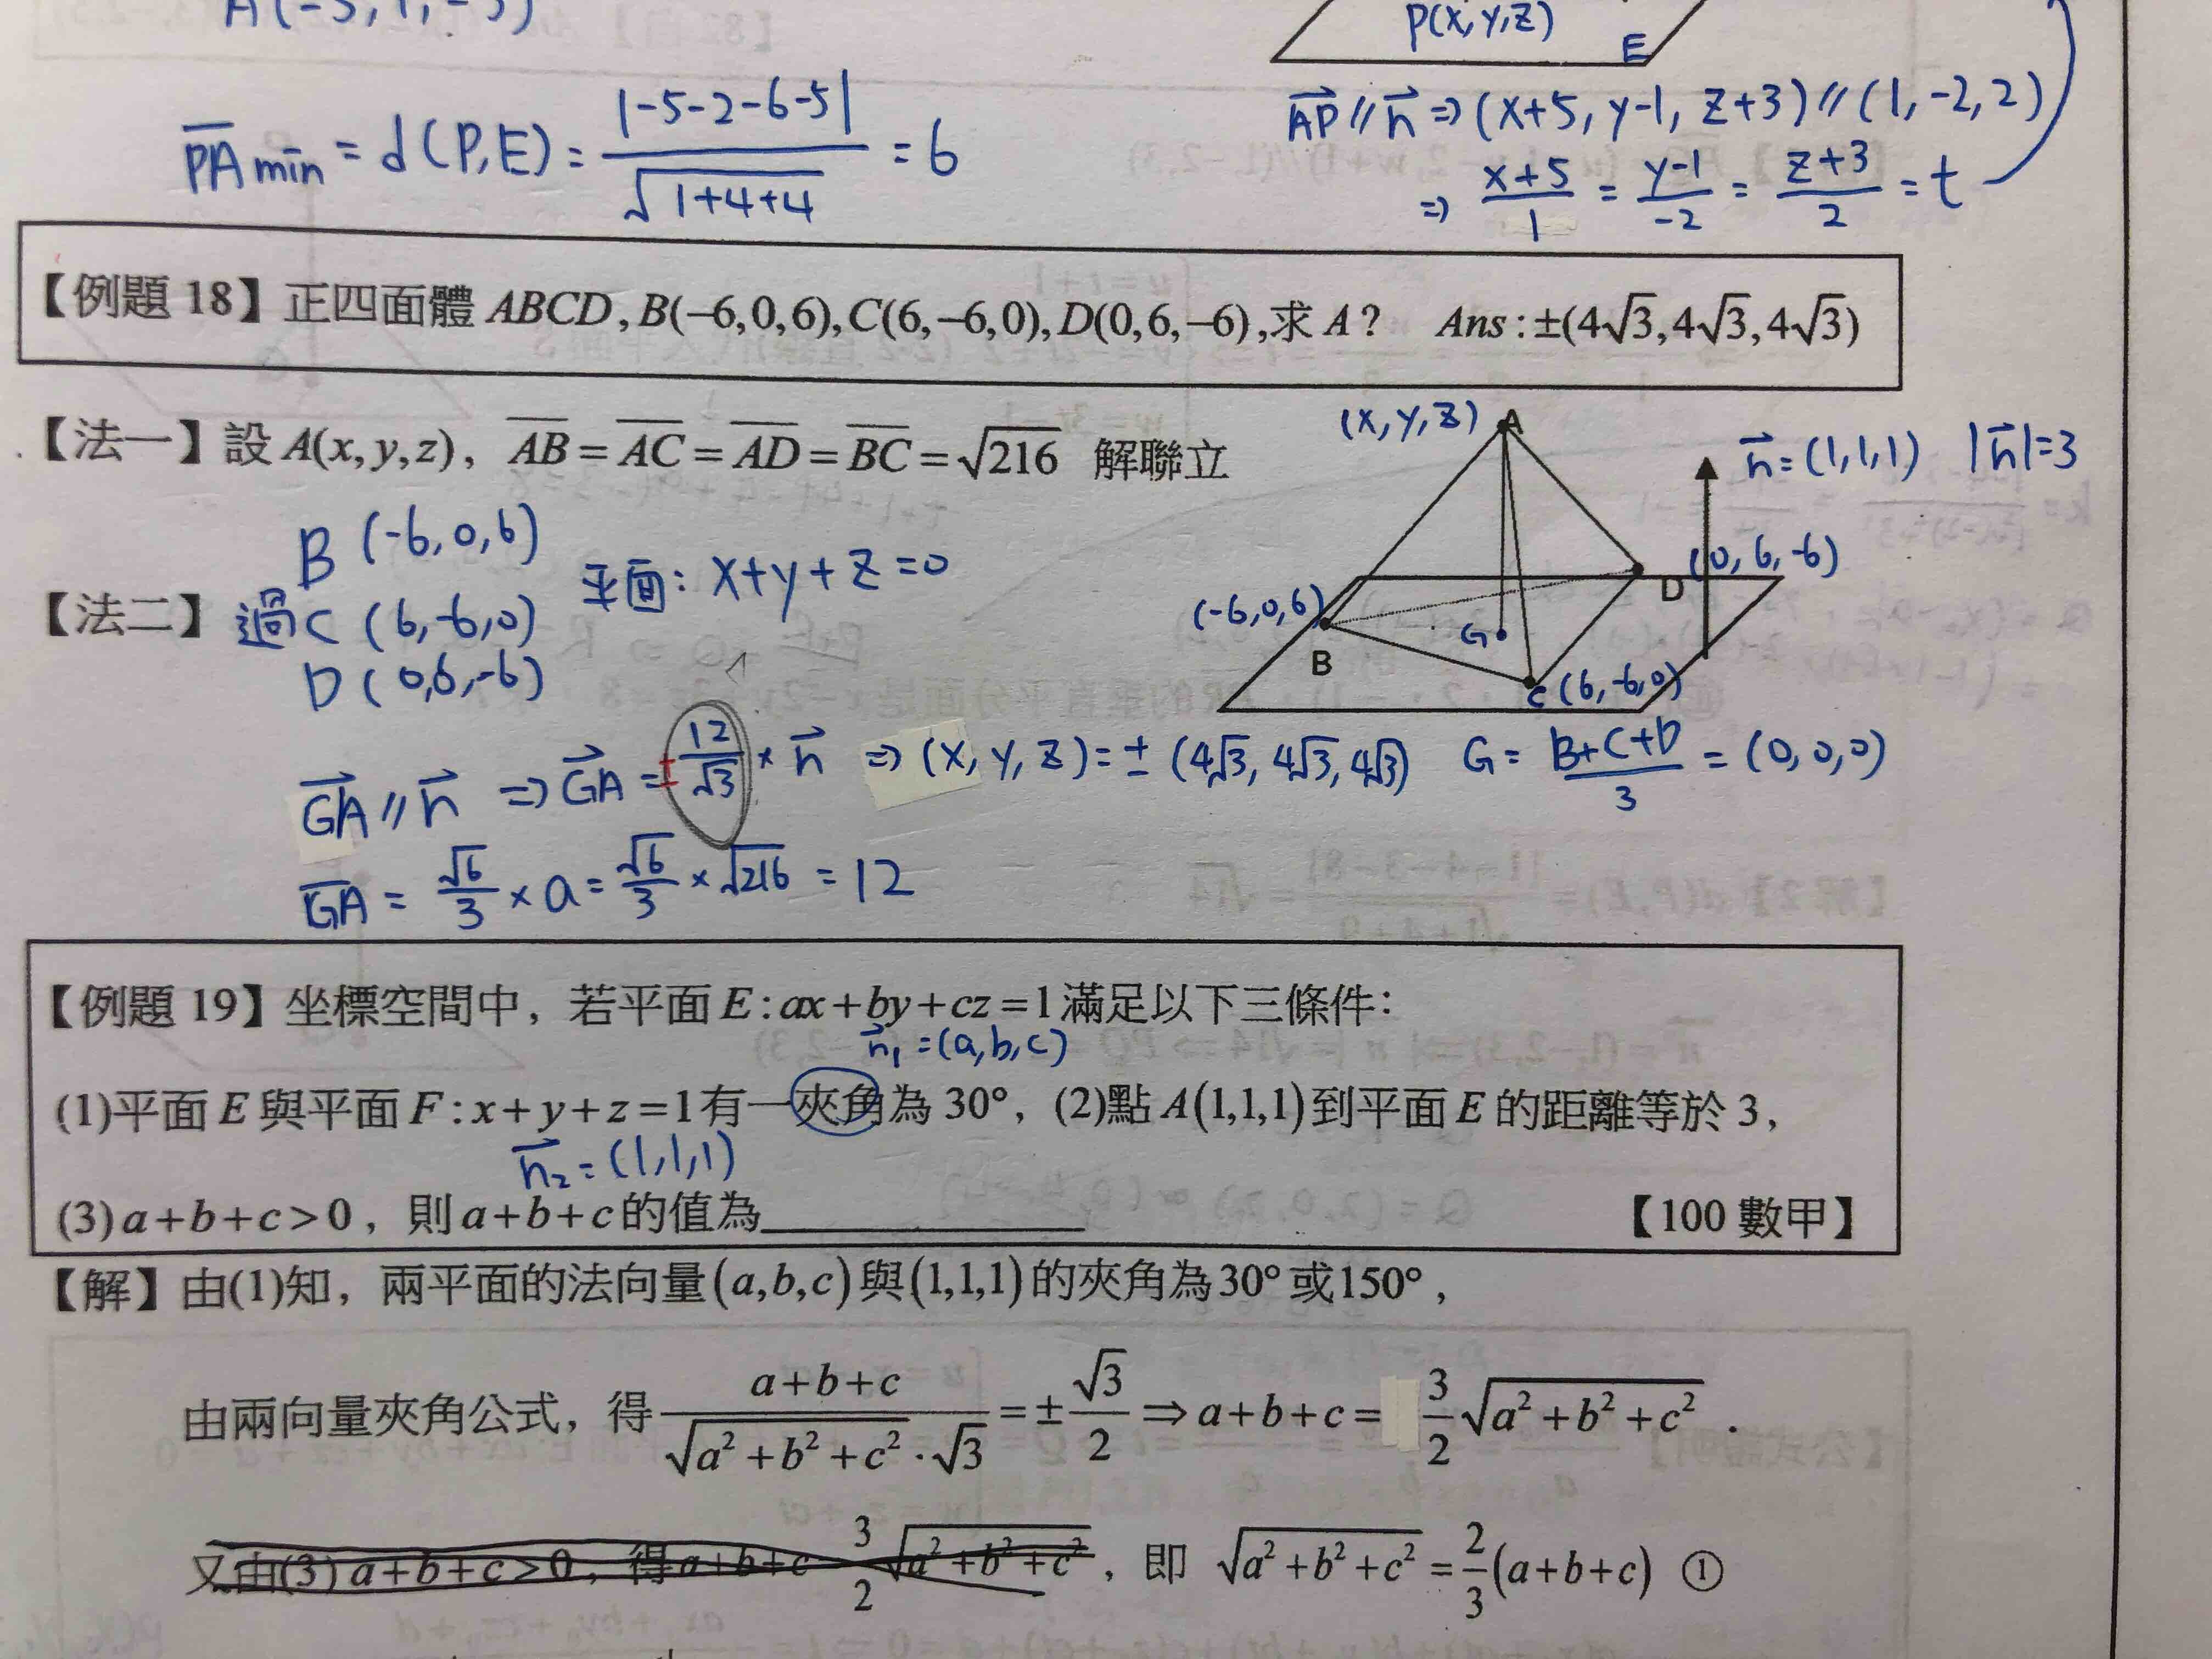 A(-5,1,-3)
P(x,y,z)
E
PA min = d(P,E) = |-5-2-6-5| / √(1+4+4) = 6
AP // n ⇒ (x+5, y-1, z+3) // (1,-2,2)
⇒ (x+5)/1 = (y-1)/-2 = (z+3)/2 = t
【例題 18】正四面體 ABCD, B(–6,0,6), C(6,–6,0), D(0,6,–6), 求 A? Ans:±(4√3,4√3,4√3)
【法一】設 A(x,y,z), AB = AC = AD = BC = √216 解聯立
(x,y,z) A
n = (1,1,1) |n|=3
B (-6,0,6)
【法二】過C (6,-6,0) 平面: x+y+z=0
D (0,6,-6)
(0,6,-6)
D
(-6,0,6)
B
G
C (6,-6,0)
GA // n ⇒ GA = ± 12/√3 × n ⇒ (x,y,z) = ± (4√3, 4√3, 4√3)
G = (B+C+D)/3 = (0,0,0)
GA = √6/3 × a = √6/3 × √216 = 12
【例題 19】坐標空間中, 若平面 E:ax+by+cz=1滿足以下三條件:
n₁ = (a,b,c)
(1)平面 E 與平面 F:x+y+z=1有一夾角為 30°, (2)點 A(1,1,1)到平面 E 的距離等於 3,
n₂ = (1,1,1)
(3)a+b+c>0, 則a+b+c的值為
【100 數甲】
【解】由(1)知, 兩平面的法向量(a,b,c)與(1,1,1)的夾角為30°或150°,
由兩向量夾角公式, 得 (a+b+c)/(√(a²+b²+c²)·√3) = ±√3/2 ⇒ a+b+c = 3/2 √(a²+b²+c²).
又由(3) a+b+c>0, 得 a+b+c 3/2 √(a²+b²+c²), 即 √(a²+b²+c²) = 2/3 (a+b+c) ①